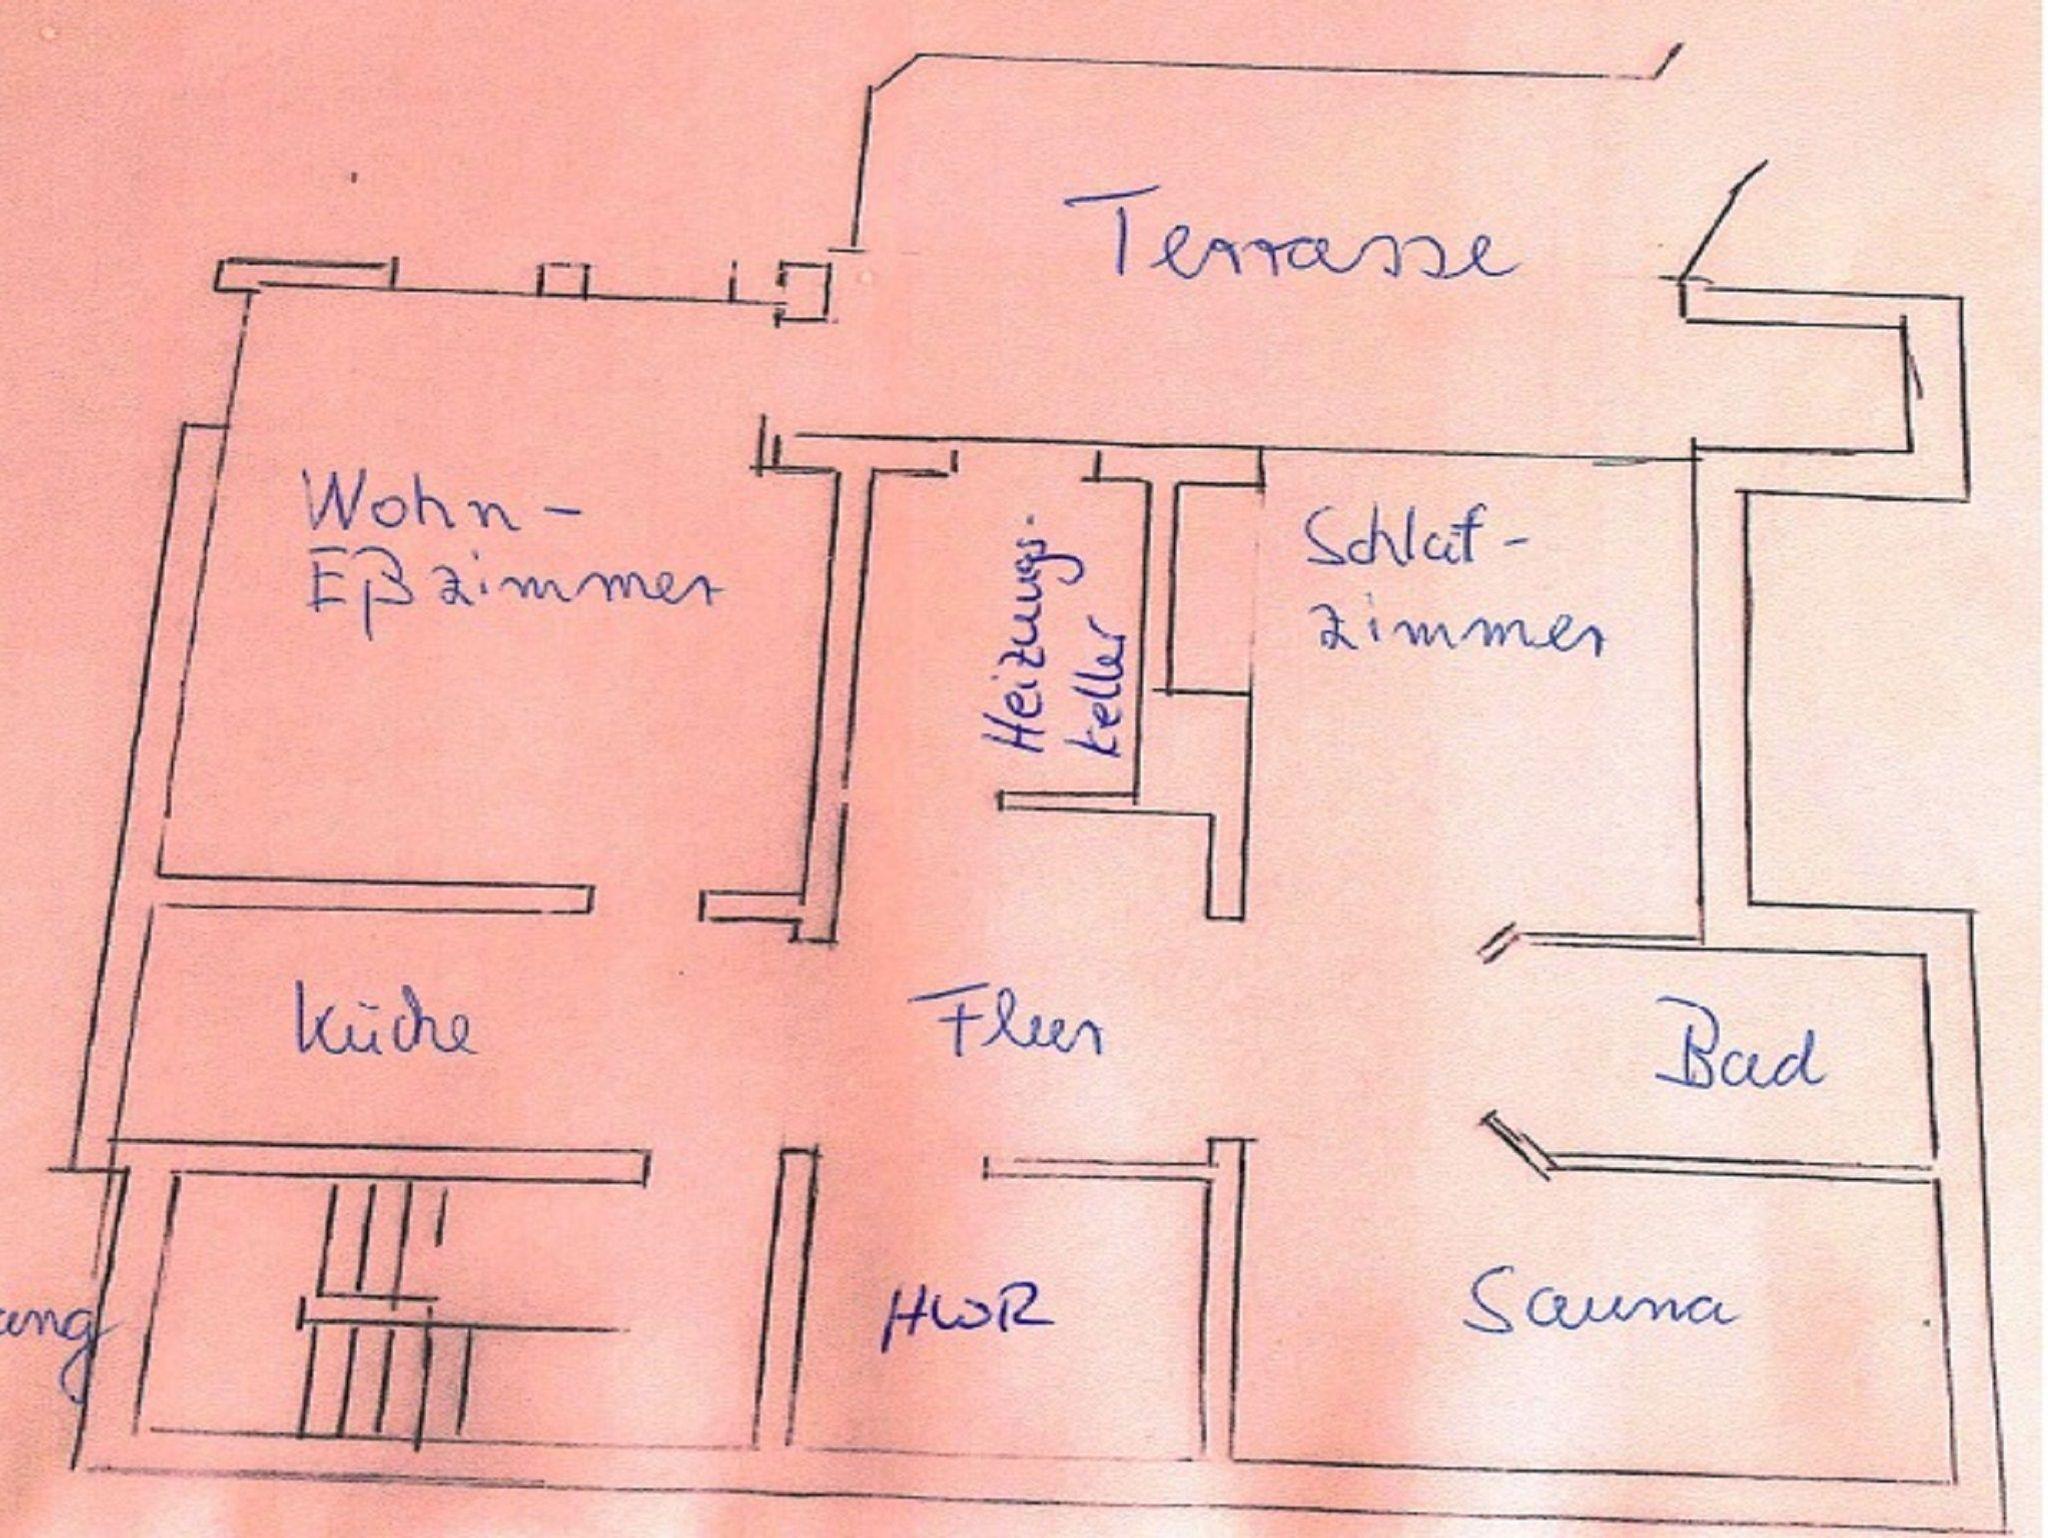 Terrasse
Wohn-
Eßzimmer
Heizungs-
keller
Schlaf-
zimmer
Küche
Flur
Bad
HWR
Sauna
ang